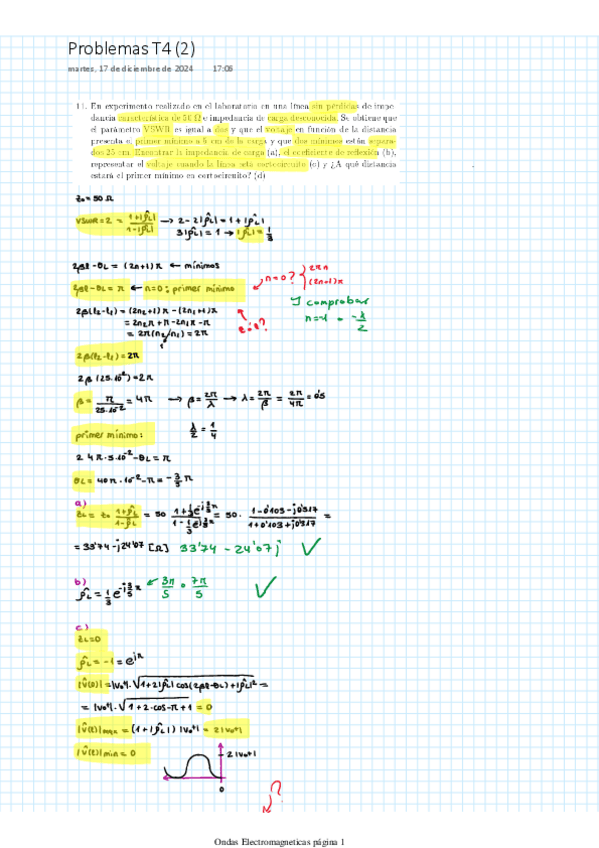 Problemas T4 (2)
martes, 17 de diciembre de 2024 17:06
11. En experimento realizado en el laboratorio en una línea sin pérdidas de impe-
dancia característica de 50 Ω e impedancia de carga desconocida. Se obtiene que
el parámetro VSWR es igual a dos y que el voltaje en función de la distancia
presenta el primer mínimo a 5 cm de la carga y que dos mínimos están separa-
dos 25 cm. Encontrar la impedancia de carga (a), el coeficiente de reflexión (b),
representar el voltaje cuando la línea está cortocircuito (c) y ¿A qué distancia
estará el primer mínimo en cortocircuito? (d)
Z₀ = 50 Ω
VSWR = 2 = (1+|ρ̂L|)/(1-|ρ̂L|) → 2-2|ρ̂L| = 1+|ρ̂L|
3|ρ̂L| = 1 → |ρ̂L| = 1/3
2βl - θL = (2n+1)π ← mínimos
2βl - θL = π ← n=0; primer mínimo
n=0? { 2πn
(2n+1)π
2β(l₂-l₁) = (2n₂+1)π - (2n₁+1)π
= 2n₂π + π - 2n₁π - π
= 2π(n₂/n₁) = 2π
1
comprobar
n=-1
-λ/2
2β(l₂-l₁) = 2π
2β(25·10⁻²) = 2π
β = π/(25·10⁻²) = 4π → β = 2π/λ → λ = 2π/β = 2π/4π = 0'5
primer mínimo: λ/2 = 1/4
2·4π·5·10⁻² - θL = π
θL = 40π·10⁻² - π = -3/5 π
a)
ZL = Z₀ (1+ρ̂L)/(1-ρ̂L) = 50 (1+1/3 e^(-j3/5π))/(1-1/3 e^(-j3/5π)) = 50 · (1-0'103-j0'317)/(1+0'103+j0'317) =
= 33'74 - j24'07 [Ω] 33'74 - 24'07j ✓
b)
ρ̂L = 1/3 e^(-j3/5π) ← 3π/5 o 7π/5 ✓
c)
ZL=0
ρ̂L = -1 = e^(jπ)
|V̂(l)| = |V₀⁺| · √(1+2|ρ̂L| cos(2βl-θL)+|ρ̂L|²) =
= |V₀⁺| · √(1+2·cos-π+1) = 0
|V̂(l)|max = (1+|ρ̂L|) |V₀⁺| = 2|V₀⁺|
|V̂(l)|min = 0
2|V₀⁺|
0
?
Ondas Electromagneticas página 1